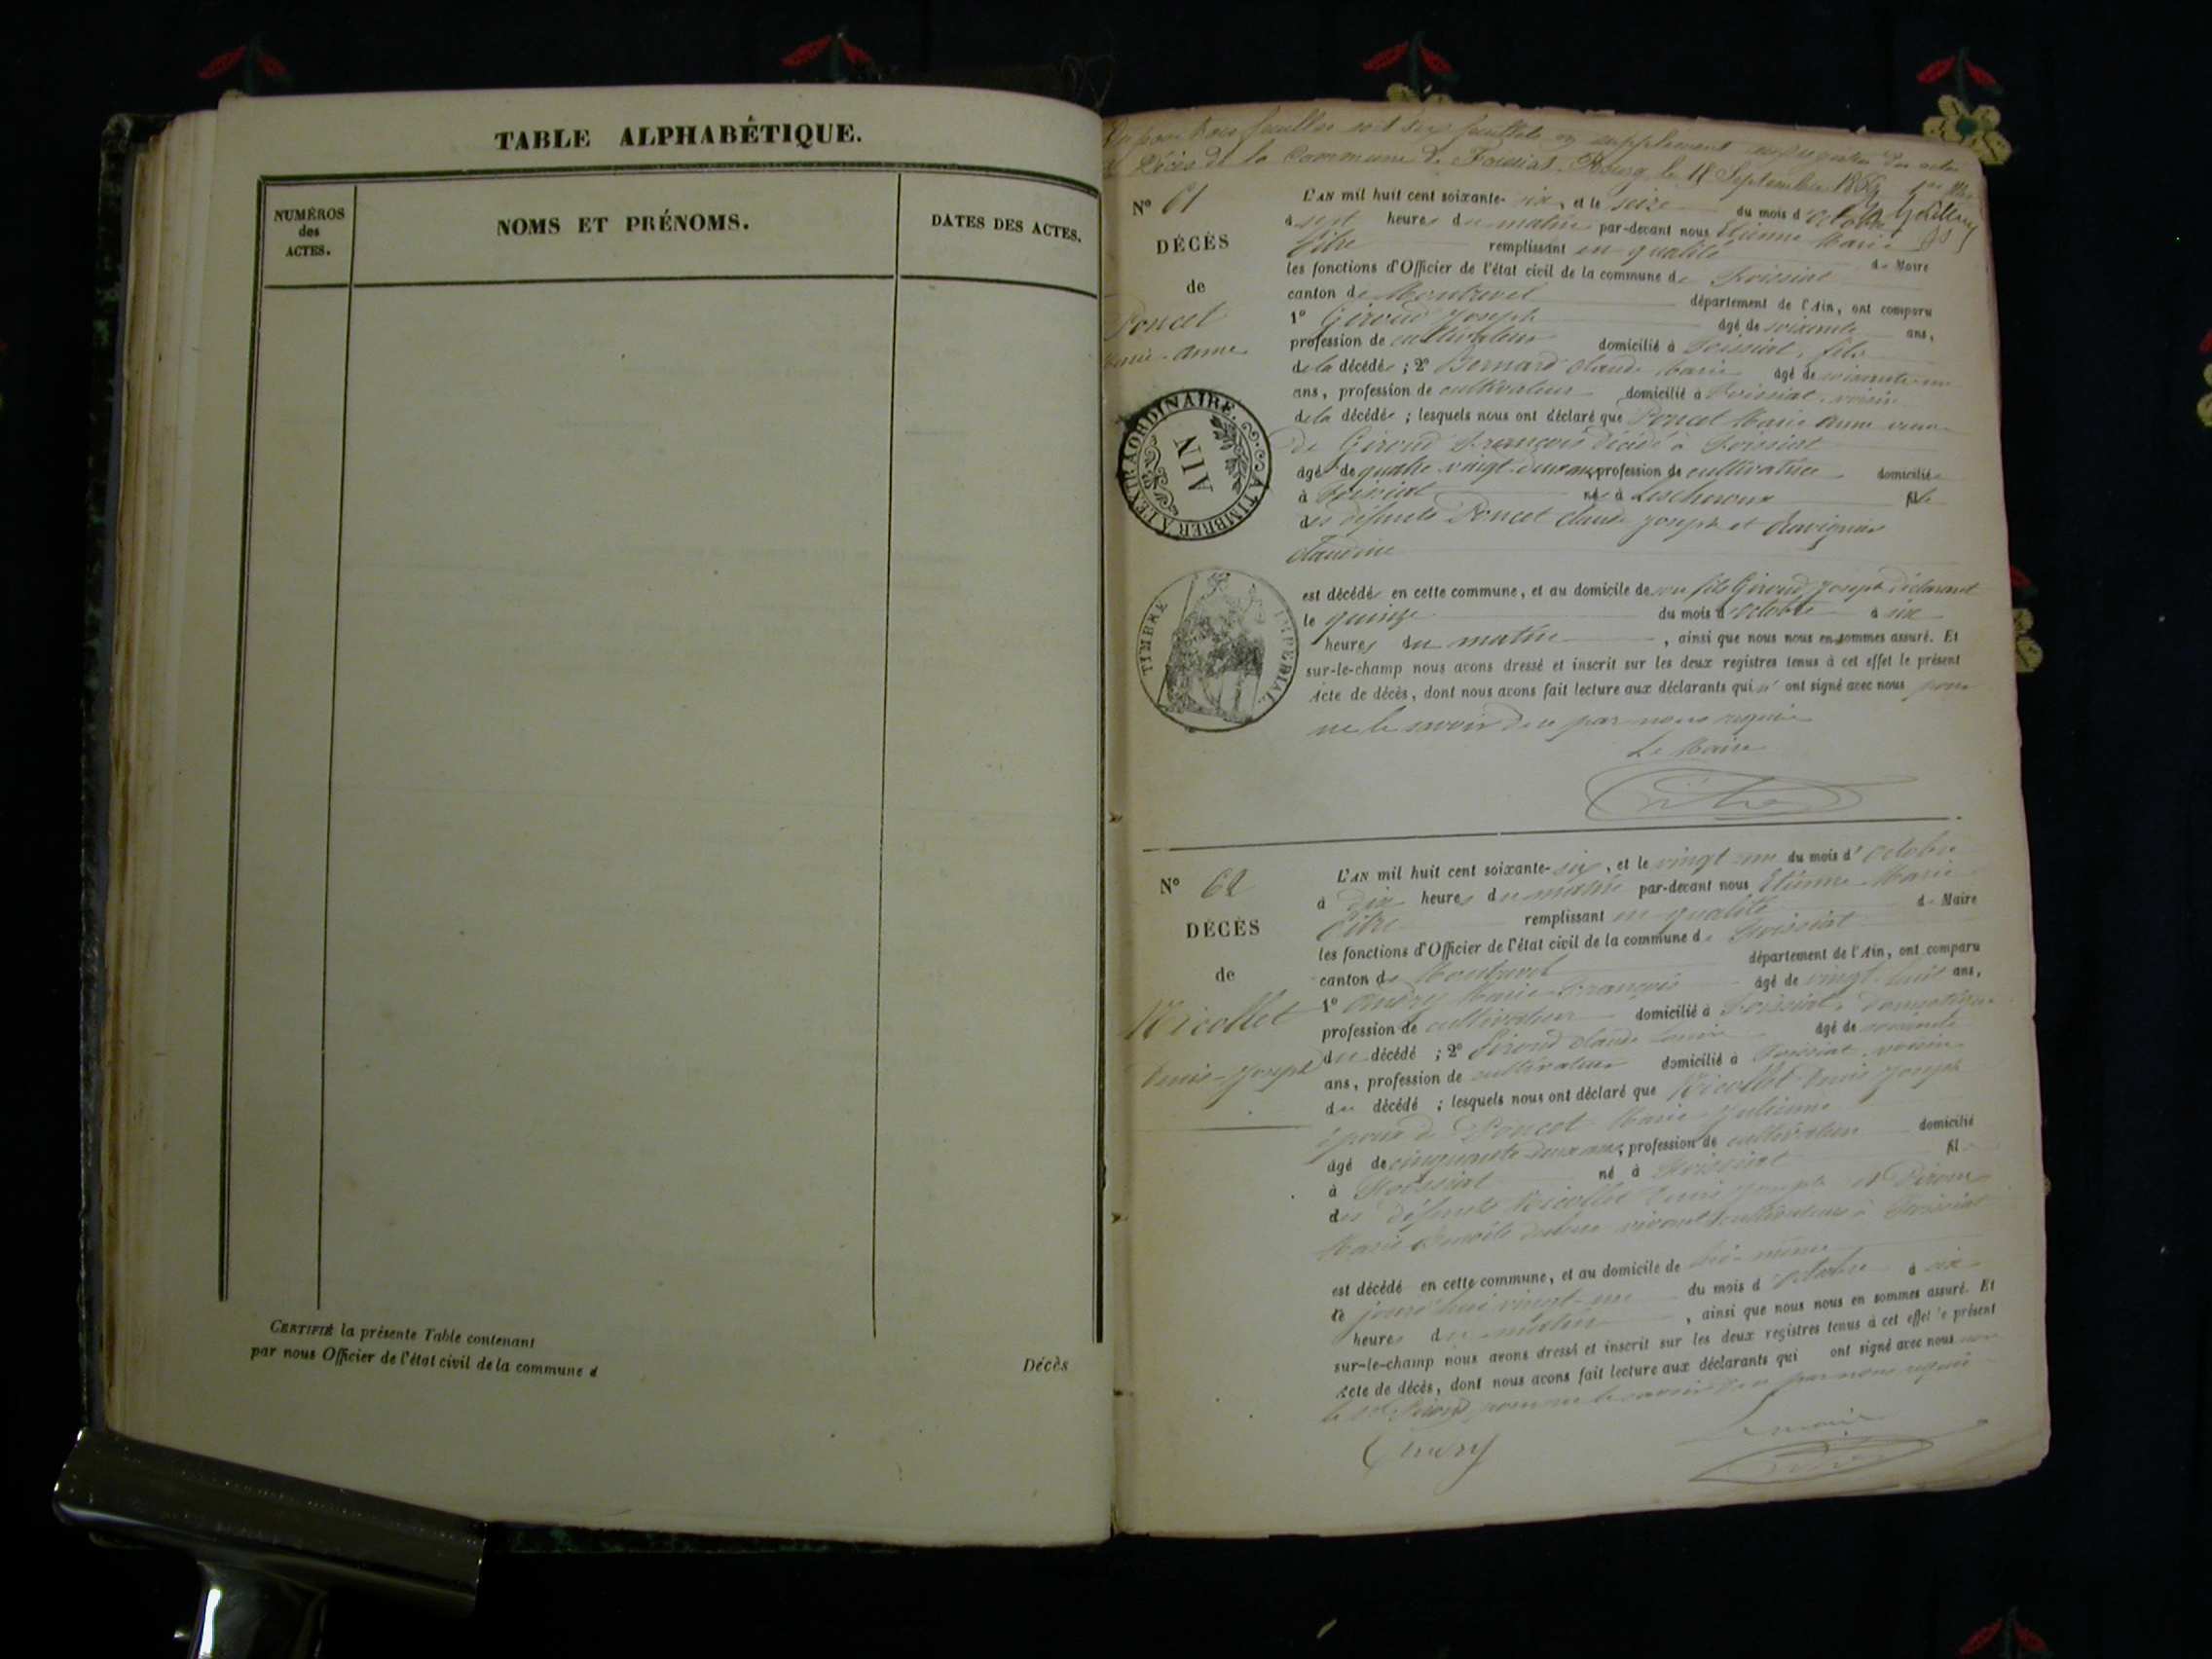 TABLE ALPHABÉTIQUE.
NUMÉROS
des
ACTES.
NOMS ET PRÉNOMS.
DATES DES ACTES.
CERTIFIÉ la présente Table contenant
Décès
par nous Officier de l'état civil de la commune d
pour trois feuilles soit six feuillets en supplément au registre des actes
de Décès de la Commune de Foissiat. Bourg, le 18 Septembre 1866
N° 61
DÉCÈS
de
Poncet
Marie-Anne
L'AN mil huit cent soixante-six, et le seize du mois d'octobre
à sept heures du matin par-devant nous Etienne Marie
Pitre remplissant en qualité de Maire
les fonctions d'Officier de l'état civil de la commune de Foissiat
canton de Montrevel département de l'Ain, ont comparu
1° Giroud Joseph âgé de soixante ans,
profession de cultivateur domicilié à Foissiat, fils
de la décédée ; 2° Bernard Claude Marie âgé de soixante un
ans, profession de cultivateur domicilié à Foissiat, voisin
de la décédée ; lesquels nous ont déclaré que Poncet Marie Anne veuve
de Giroud François décédé à Foissiat
âgée de quatre vingt deux ans, profession de cultivatrice domiciliée
à Foissiat née à Lescheroux fille
des défunts Poncet Claude Joseph et
Claudine
est décédée en cette commune, et au domicile de son fils Giroud Joseph déclarant
le quinze du mois d'octobre à six
heures du matin, ainsi que nous nous en sommes assuré. Et
sur-le-champ nous avons dressé et inscrit sur les deux registres tenus à cet effet le présent
Acte de décès, dont nous avons fait lecture aux déclarants qui n'ont signé avec nous pour
ne le savoir de ce par nous requis
Le Maire
A TIMBRER A L'EXTRAORDINAIRE.
AIN
TIMBRE IMPERIAL.
N° 62
DÉCÈS
de
Nicollet
Denis-Joseph
L'AN mil huit cent soixante-six, et le vingt un du mois d'octobre
à dix heures du matin par-devant nous Etienne Marie
Pitre remplissant en qualité de Maire
les fonctions d'Officier de l'état civil de la commune de Foissiat
canton de Montrevel département de l'Ain, ont comparu
1° Marie François âgé de vingt huit ans,
profession de cultivateur domicilié à Foissiat, domestique
du décédé ; 2° Claude Louis âgé de soixante
ans, profession de cultivateur domicilié à Foissiat voisin
du décédé ; lesquels nous ont déclaré que Nicollet Denis Joseph
époux de Poncet Marie Julienne
âgé de cinquante deux ans, profession de cultivateur domicilié
à Foissiat né à Foissiat fil
des défunts Nicollet Denis Joseph et
Marie vivant cultivateurs à Foissiat
est décédé en cette commune, et au domicile de lui-même
le jourd'hui vingt-un du mois d'octobre à six
heures du matin, ainsi que nous nous en sommes assuré. Et
sur-le-champ nous avons dressé et inscrit sur les deux registres tenus à cet effet le présent
Acte de décès, dont nous avons fait lecture aux déclarants qui ont signé avec nous non
le pour ne le savoir de ce par nous requis
Le maire